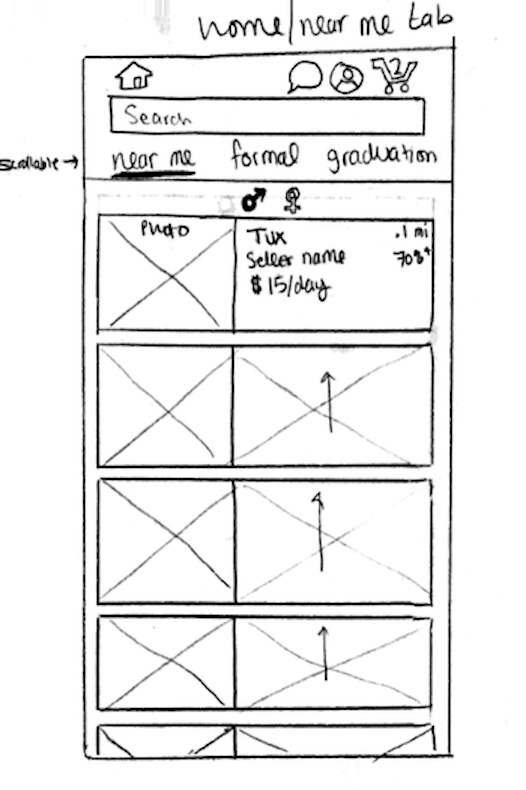 home/near me tab
2
Search
scrollable →
near me formal graduation
♂ ♀
Photo
Tux .1 mi
Seller name
$15/day